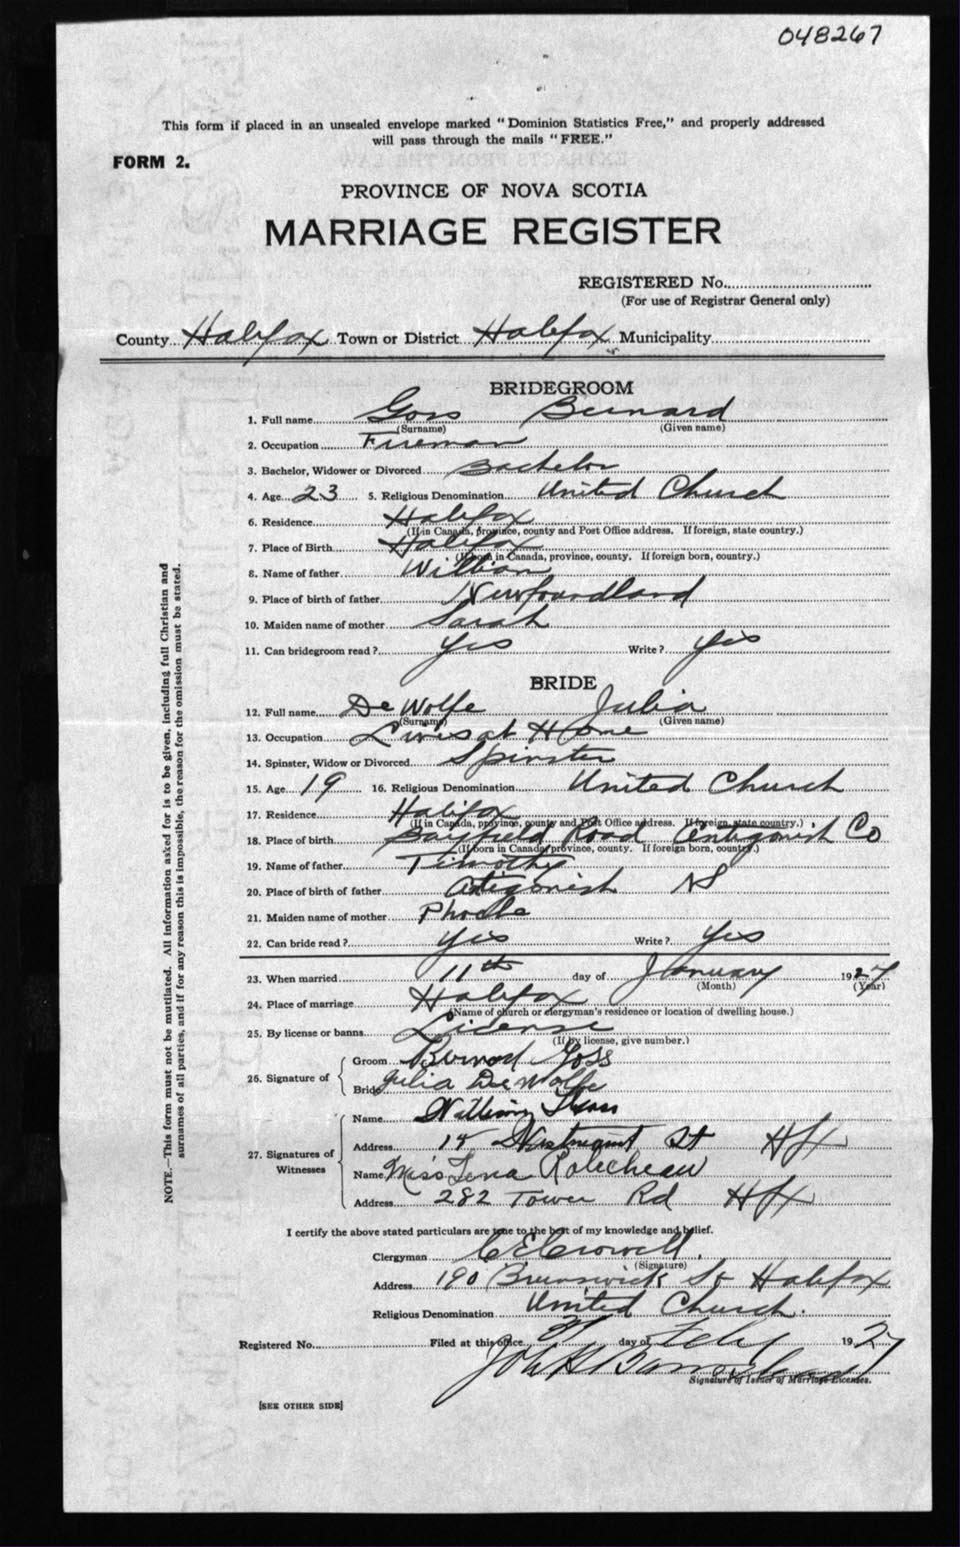 048267
This form if placed in an unsealed envelope marked "Dominion Statistics Free," and properly addressed
will pass through the mails "FREE."
FORM 2.
PROVINCE OF NOVA SCOTIA
MARRIAGE REGISTER
REGISTERED No.
(For use of Registrar General only)
County Halifax Town or District Halifax Municipality
BRIDEGROOM
1. Full name Goss Bernard
(Surname) (Given name)
2. Occupation Fireman
3. Bachelor, Widower or Divorced Bachelor
4. Age 23 5. Religious Denomination United Church
6. Residence Halifax
(If in Canada, province, county and Post Office address. If foreign, state country.)
7. Place of Birth Halifax
(If born in Canada, province, county. If foreign born, country.)
8. Name of father William
9. Place of birth of father Newfoundland
10. Maiden name of mother Sarah
11. Can bridegroom read? Yes Write? Yes
BRIDE
12. Full name De Wolfe Julia
(Surname) (Given name)
13. Occupation Lives at Home
14. Spinster, Widow or Divorced Spinster
15. Age 19 16. Religious Denomination United Church
17. Residence Halifax
(If in Canada, province, county and Post Office address. If foreign, state country.)
18. Place of birth Bayfield Road Antigonish Co
(If born in Canada, province, county. If foreign born, country.)
19. Name of father Timothy
20. Place of birth of father Antigonish NS
21. Maiden name of mother Phoebe
22. Can bride read? Yes Write? Yes
23. When married 11th day of January 1927
(Month) (Year)
24. Place of marriage Halifax
(Name of church or clergyman's residence or location of dwelling house.)
25. By license or banns License
(If by license, give number.)
26. Signature of
Groom Bernard Goss
Bride Julia De Wolfe
27. Signatures of Witnesses
Name William
Address St Hfx
Name Miss Lena
Address 282 Tower Rd Hfx
I certify the above stated particulars are true to the best of my knowledge and belief.
Clergyman C E Crowell.
(Signature)
Address 190 Brunswick St Halifax
Religious Denomination United Church.
Registered No. Filed at this office day of Feby 1927
John
Signature of Issuer of Marriage Licenses.
[SEE OTHER SIDE]
NOTE.—This form must not be mutilated. All information asked for is to be given, including full Christian and
surnames of all parties, and if for any reason this is impossible, the reason for the omission must be stated.